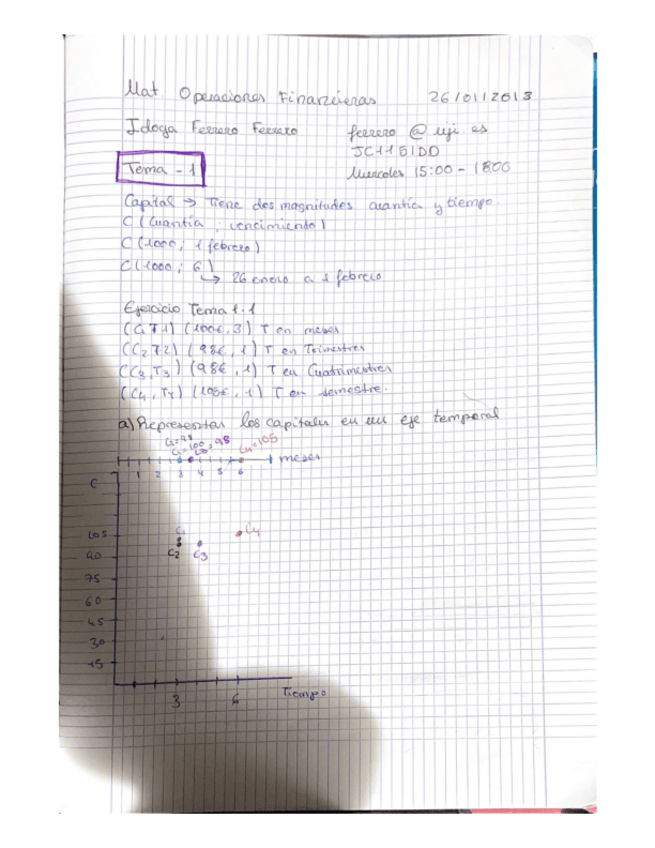 Mat. Operaciones Financieras 26/01/2013
Idoya Ferrero Ferrero ferrero @ uji es
JC1151DD
Tema - 1 Miercoles 15:00 - 18:00
Capital → Tiene dos magnitudes cuantía y tiempo.
C (Cuantía ; vencimiento)
C (1000; 1 febrero)
C (1000; 6)
↳ 26 enero a 1 febrero
Ejercicio Tema 1.1
(C1 T1) (100€, 3) T en meses
(C2 T2) (98€, 1) T en Trimestres
(C3, T3) (98€, 1) T en Cuatrimestres
(C4, T4) (105€, 1) T en semestre.
a) Representar los capitales en un eje temporal
C2=98
C1=100 C3=98 C4=105
1 2 3 4 5 6 meses
C
105 C1 C4
90 C2 C3
75
60
45
30
15
3 6 Tiempo